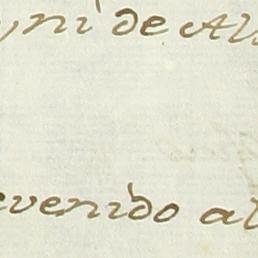 yni de Al
evenido al